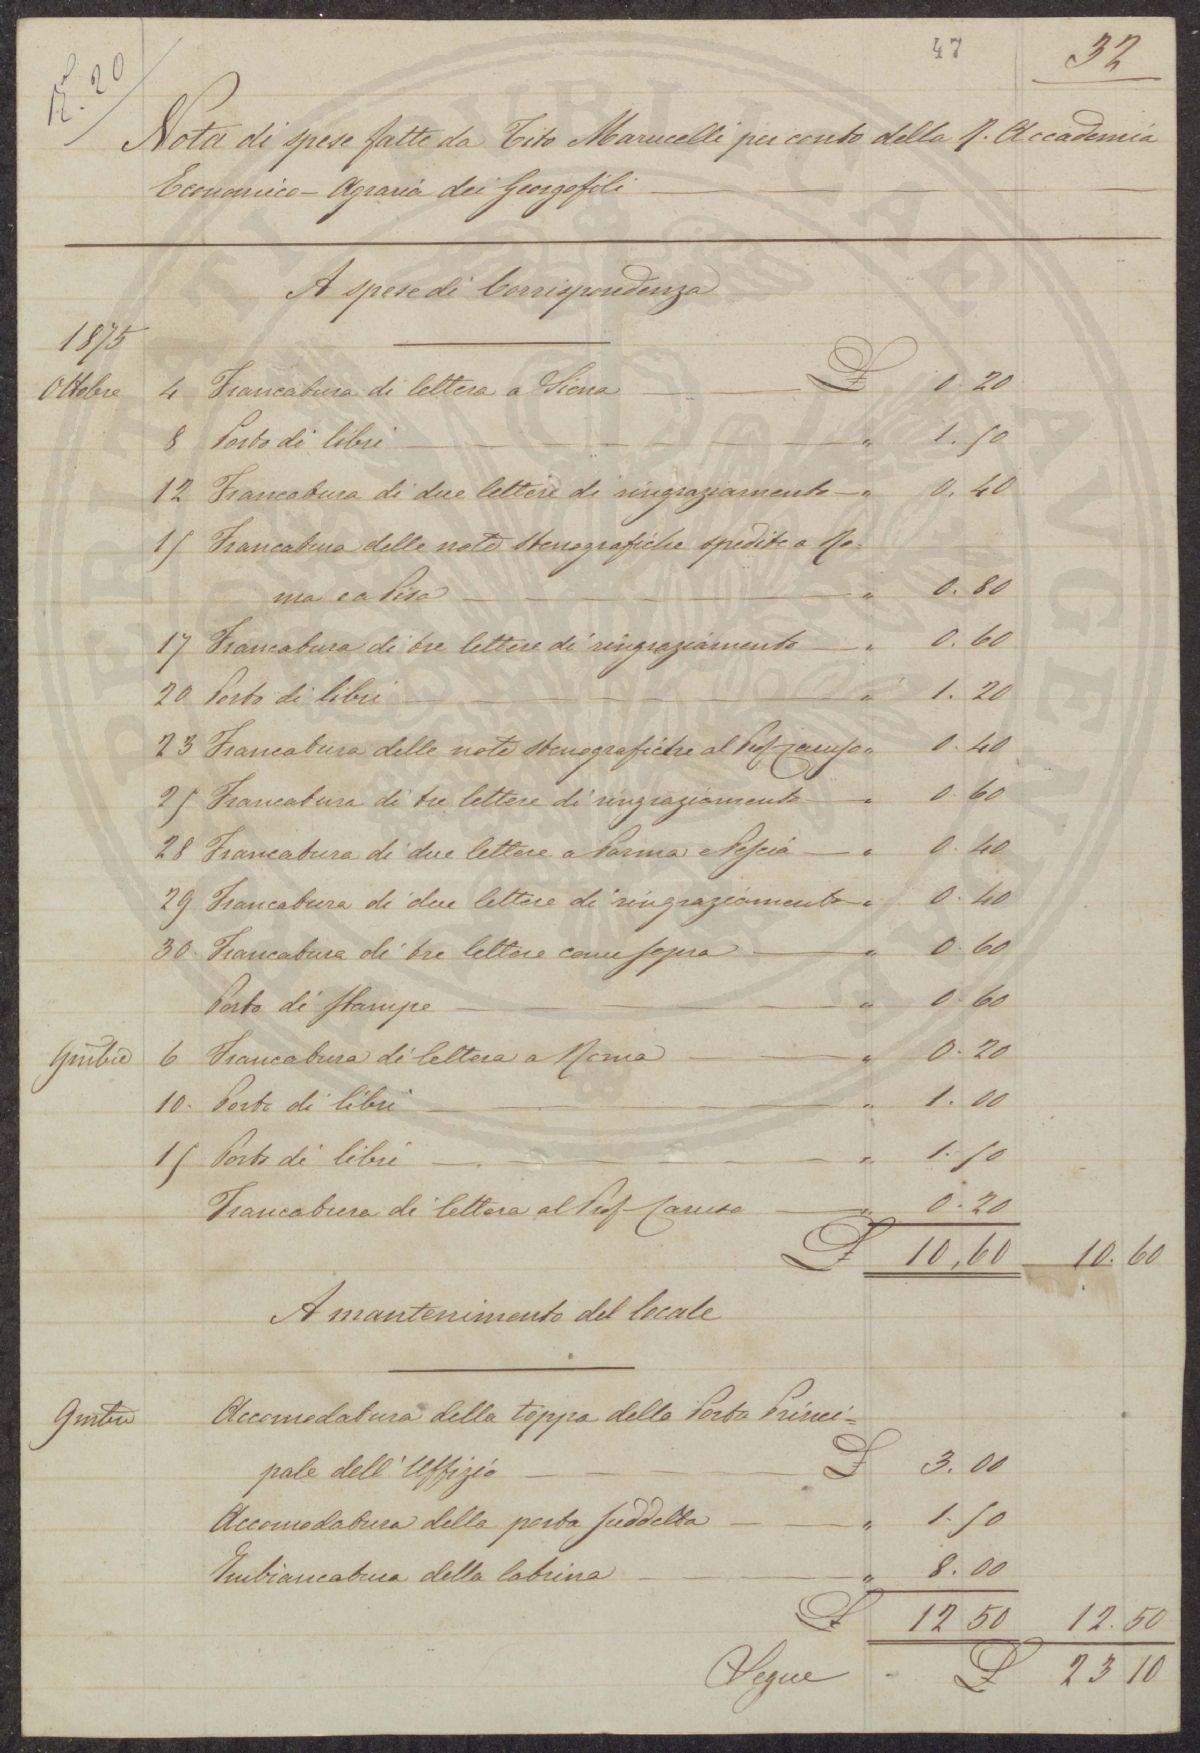 47
32
N.° 20
Nota di spese fatte da Tito Marucelli per conto della R. Accademia
Economico-Agraria dei Georgofili
A spese di Corrispondenza
1875
Ottobre 4 Francatura di lettera a Siena £ 0.20
8 Porto di libri " 1.50
12 Francatura di due lettere di ringraziamento " 0.40
15 Francatura delle note stenografiche spedite a Ro=
ma e a Pisa " 0.80
17 Francatura di tre lettere di ringraziamento " 0.60
20 Porto di libri " 1.20
23 Francatura delle note stenografiche al Prof Caruso " 0.40
25 Francatura di tre lettere di ringraziamento " 0.60
28 Francatura di due lettere a Parma e Pescia " 0.40
29 Francatura di due lettere di ringraziamento " 0.40
30. Francatura di tre lettere come sopra " 0.60
Porto di stampe " 0.60
9mbre 6 Francatura di lettera a Roma " 0.20
10. Porto di libri " 1.00
15 Porto di libri " 1.50
Francatura di lettera al Prof Caruso " 0.20
£ 10,60 10.60
A mantenimento del locale
9mbre Accomodatura della toppa della Porta Princi=
pale dell'Uffizio £ 3.00
Accomodatura della porta suddetta " 1.50
Imbiancatura della latrina " 8.00
£ 12 50 12.50
Segue £ 23 10